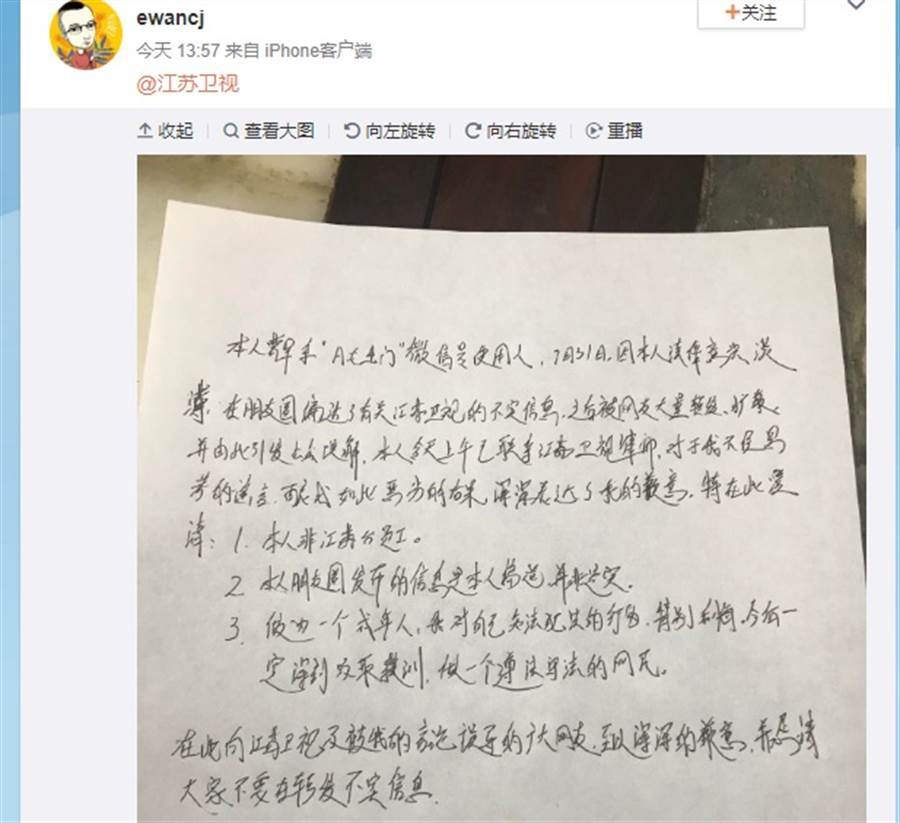 ewancj
+关注
今天 13:57 来自 iPhone客户端
@江苏卫视
收起 查看大图 向左旋转 向右旋转 重播
本人 系 "门"微信号使用人，7月31日，因本人法律意识淡
薄，在朋友圈编造了有关江苏卫视的不实信息，之后被网友大量 、扩散，
并由此引发公众误解，本人今天上午已联系江苏卫视律师，对于我不经思
考的谣言， 成如此恶劣的后果，深深表达了我的歉意，特在此澄
清：1. 本人非江苏台员工。
2 本人朋友圈发布的信息是本人编造，并非属实.
3. 做为一个成年人，我对自己 法 的行为，特别后悔，今后一
定深刻 取教训，做一个遵纪守法的网民。
在此向江苏卫视及被我的言论误导的广大网友，致以深深的歉意，并恳请
大家不要在转发不实信息.